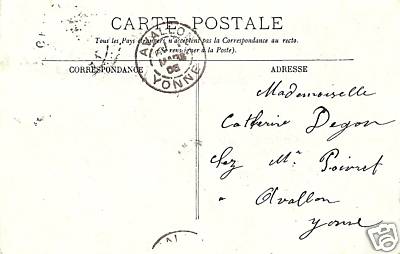 CARTE POSTALE
Tous les Pays étrangers n'acceptent pas la Correspondance au recto.
(Se renseigner à la Poste).
CORRESPONDANCE
ADRESSE
AVALLON
YONNE
Mademoiselle
Catherine Degon
chez Mr Poivret
à Avallon
Yonne